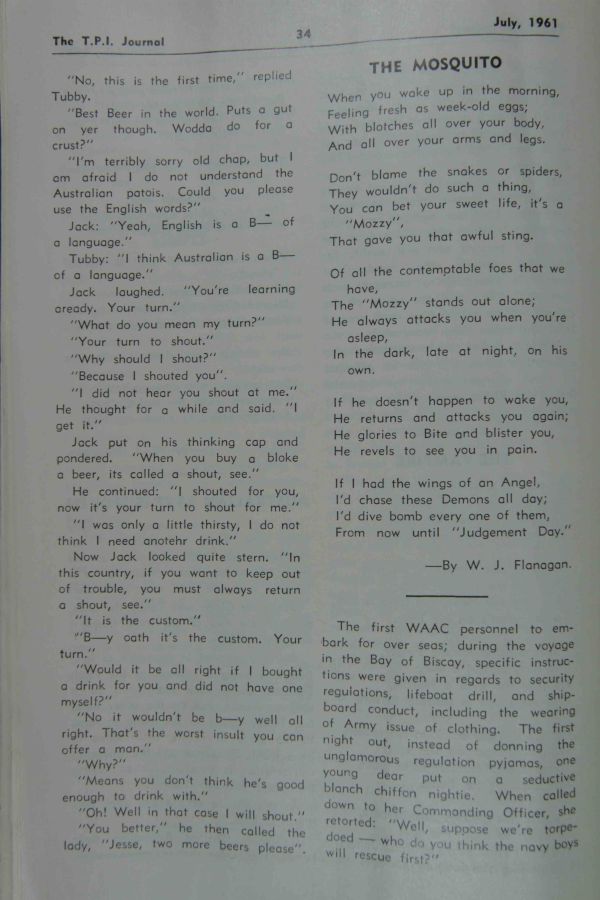 The T.P.I. Journal
34
July, 1961
"No, this is the first time," replied
Tubby.
"Best Beer in the world. Puts a gut
on yer though. Wodda do for a
crust?"
"I'm terribly sorry old chap, but I
am afraid I do not understand the
Australian patois. Could you please
use the English words?"
Jack: "Yeah, English is a B— of
a language."
Tubby: "I think Australian is a B—
of a language."
Jack laughed. "You're learning
aready. Your turn."
"What do you mean my turn?"
"Your turn to shout."
"Why should I shout?"
"Because I shouted you".
"I did not hear you shout at me."
He thought for a while and said. "I
get it."
Jack put on his thinking cap and
pondered. "When you buy a bloke
a beer, its called a shout, see."
He continued: "I shouted for you,
now it's your turn to shout for me."
"I was only a little thirsty, I do not
think I need anotehr drink."
Now Jack looked quite stern. "In
this country, if you want to keep out
of trouble, you must always return
a shout, see."
"It is the custom."
"'B—y oath it's the custom. Your
turn."
"Would it be all right if I bought
a drink for you and did not have one
myself?"
"No it wouldn't be b—y well all
right. That's the worst insult you can
offer a man."
"Why?"
"Means you don't think he's good
enough to drink with."
"Oh! Well in that case I will shout."
"You better," he then called the
lady, "Jesse, two more beers please".
THE MOSQUITO
When you wake up in the morning,
Feeling fresh as week-old eggs;
With blotches all over your body,
And all over your arms and legs.
Don't blame the snakes or spiders,
They wouldn't do such a thing,
You can bet your sweet life, it's a
"Mozzy",
That gave you that awful sting.
Of all the contemptable foes that we
have,
The "Mozzy" stands out alone;
He always attacks you when you're
asleep,
In the dark, late at night, on his
own.
If he doesn't happen to wake you,
He returns and attacks you again;
He glories to Bite and blister you,
He revels to see you in pain.
If I had the wings of an Angel,
I'd chase these Demons all day;
I'd dive bomb every one of them,
From now until "Judgement Day."
—By W. J. Flanagan.
The first WAAC personnel to em-
bark for over seas; during the voyage
in the Bay of Biscay, specific instruc-
tions were given in regards to security
regulations, lifeboat drill, and ship-
board conduct, including the wearing
of Army issue of clothing. The first
night out, instead of donning the
unglamorous regulation pyjamas, one
young dear put on a seductive
blanch chiffon nightie. When called
down to her Commanding Officer, she
retorted: "Well, suppose we're torpe-
doed — who do you think the navy boys
will rescue first?"